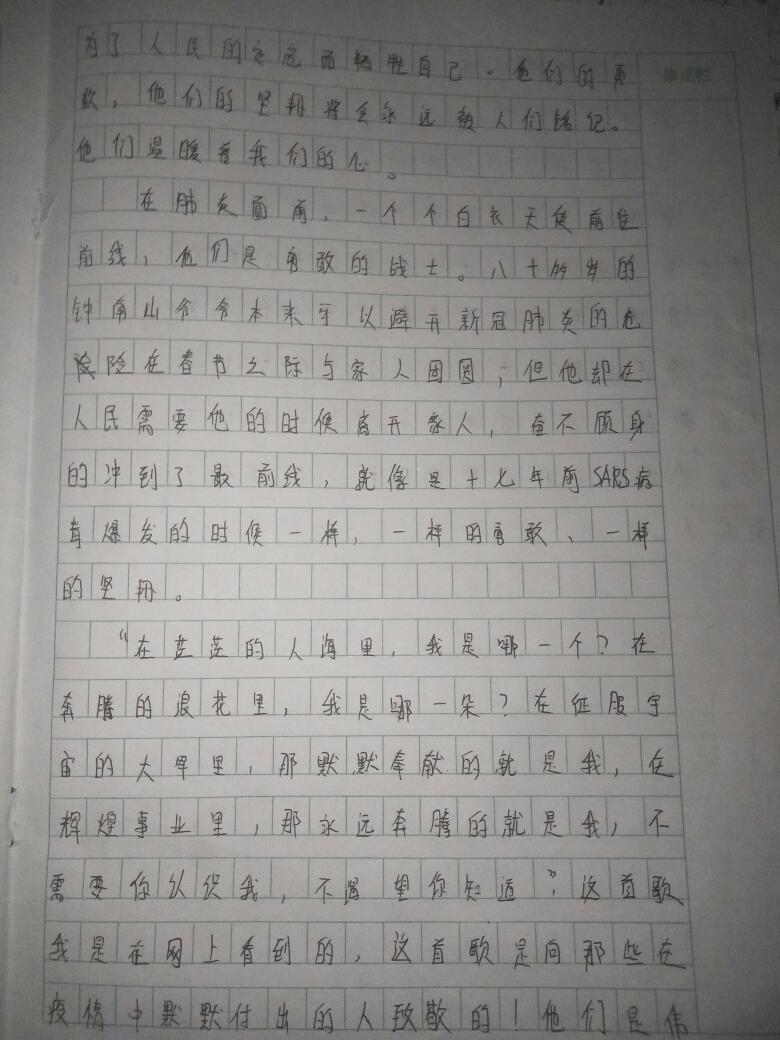 为了人民的安危而牺牲自己。他们的勇
敢，他们的坚持将会永远被人们铭记。
他们温暖着我们的心。
在肺炎面前，一个个白衣天使前往
前线，他们是勇敢的战士。八十多岁的
钟南山爷爷本来可以避开新冠肺炎的危
险在春节之际与家人团圆；但他却在
人民需要他的时候离开家人，奋不顾身
的冲到了最前线，就像是十七年前SARS病
毒爆发的时候一样，一样的勇敢、一样
的坚持。
“在茫茫的人海里，我是哪一个？在
奔腾的浪花里，我是哪一朵？在征服宇
宙的大军里，那默默奉献的就是我，在
辉煌事业里，那永远奔腾的就是我，不
需要你认识我，不渴望你知道”，这首歌
我是在网上看到的，这首歌是向那些在
疫情中默默付出的人致敬的！他们是伟